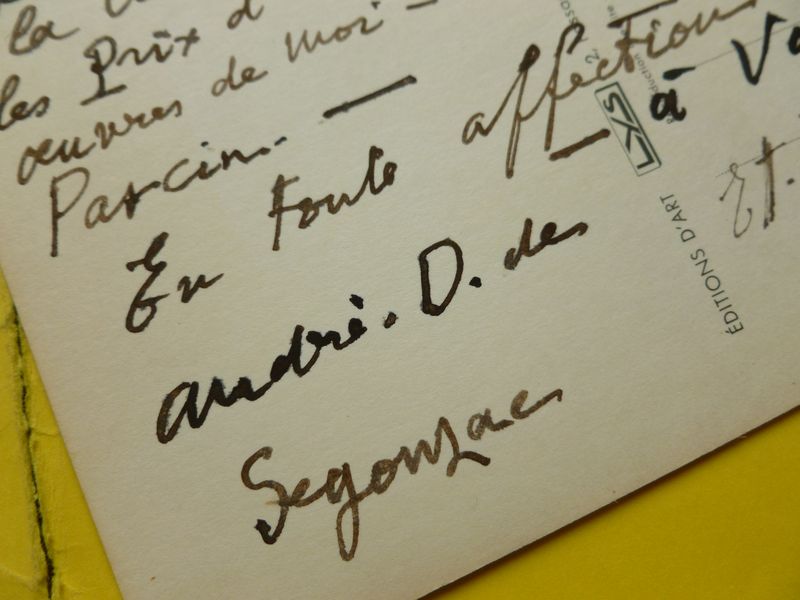 la
les Prix d
œuvres de moi –
Pascin. —
En toute affection
– à Vo
Et.
André. D. de
Segonzac
LYS
ÉDITIONS D'ART